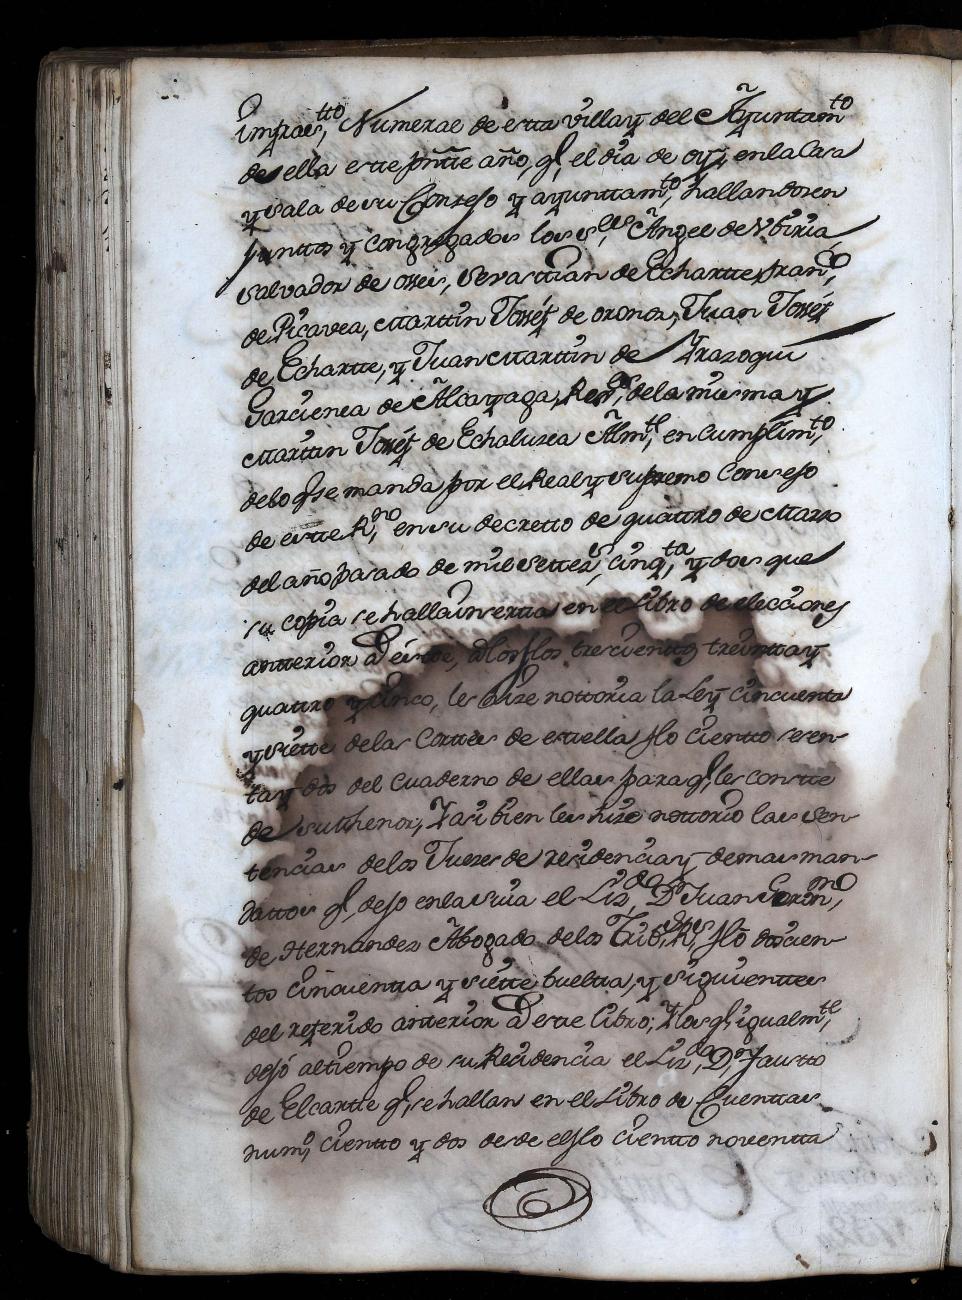 Imfraes,tto Numeral de esta villa y del Ayuntamto
de ella este pñte año, q,l el dia de oy, en la Casa
y sala de su Conzejo y ayuntamto, hallandosen
Juntos y congregados los s,res Angel de Vbiria
Salvador de osses, Sevastian de Echarte, fran,co
de Picavea, Martin Joseph de oronoz, Juan Joseph
de Echarte, y Juan Martin de Irazoqui
Garcienea de Alcayaga, Reg,es, de la misma y
Martin Joseph de Echaluzea Alm,te, en Cumplim,to
de lo q,e se manda por el Real y supremo Consejo
de este R,no en su decretto de quattro de Marzo
del año pasado de mil settez,s cinq,ta y dos que
su copia se halla insertta en el Libro de elecciones
antterior á éstte, a los f,los trescientos treintta y
quattro y cinco, les hize nottoria la Ley cincuenta
y siette de las Corttes de estella flo cientto sesen-
ta y dos del Cuaderno de ellas para q,e les constte
de su thenor, Y asi bien les hize nottorio las sen-
tencias de los Juezes de residencia y demas man-
dattos q,e dejo en la suia el Liz,do D,n Juan Geron,mo
de Hernandez Abogado de los Trib,s R,les, flo doscien-
tos cinquentta y siette buelta, y siguienttes
del referido anterior á este libro; Y los q,e igualm,te
dejó al tiempo de su Residencia el Liz,do D,n Faustto
de Elcartte q,e se hallan en el Libro de Cuenttas
num,o cientto y dos desde el flo cientto noventta